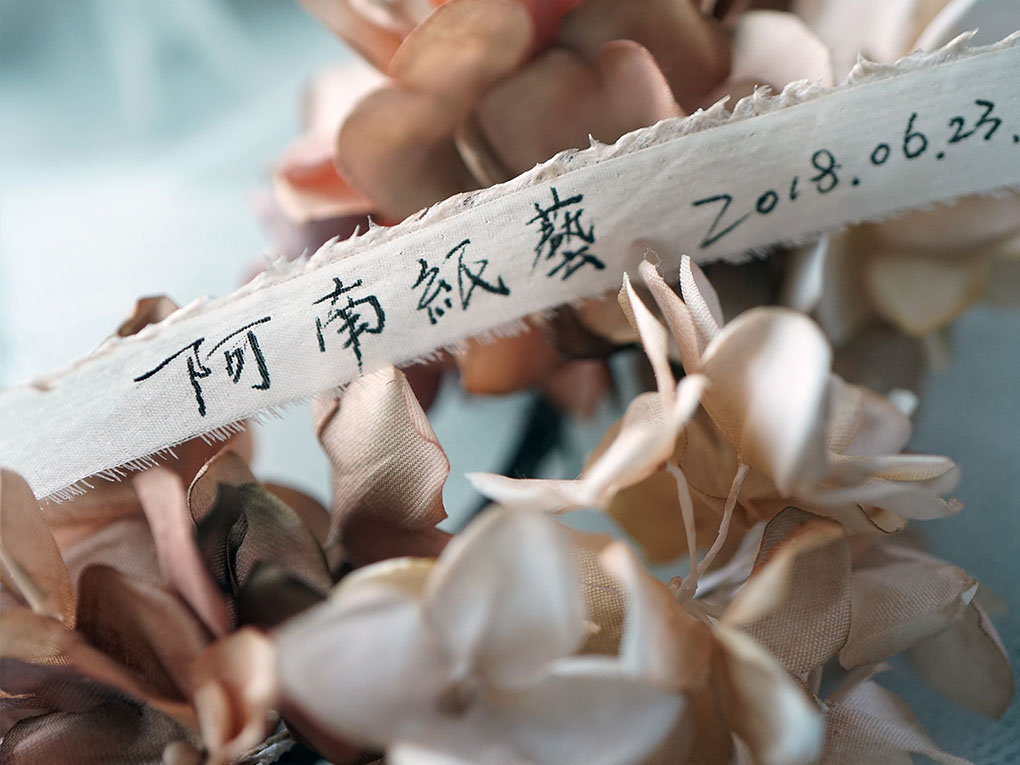 阿南紙藝 2018.06.23.